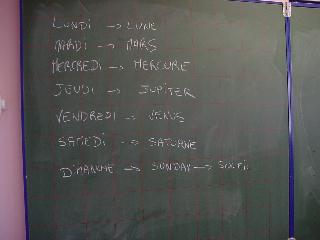 LUNDI -> LUNE
MARDI -> MARS
MERCREDI -> MERCURE
JEUDI -> JUPITER
VENDREDI -> VENUS
SAMEDI -> SATURNE
DIMANCHE -> SUNDAY ->